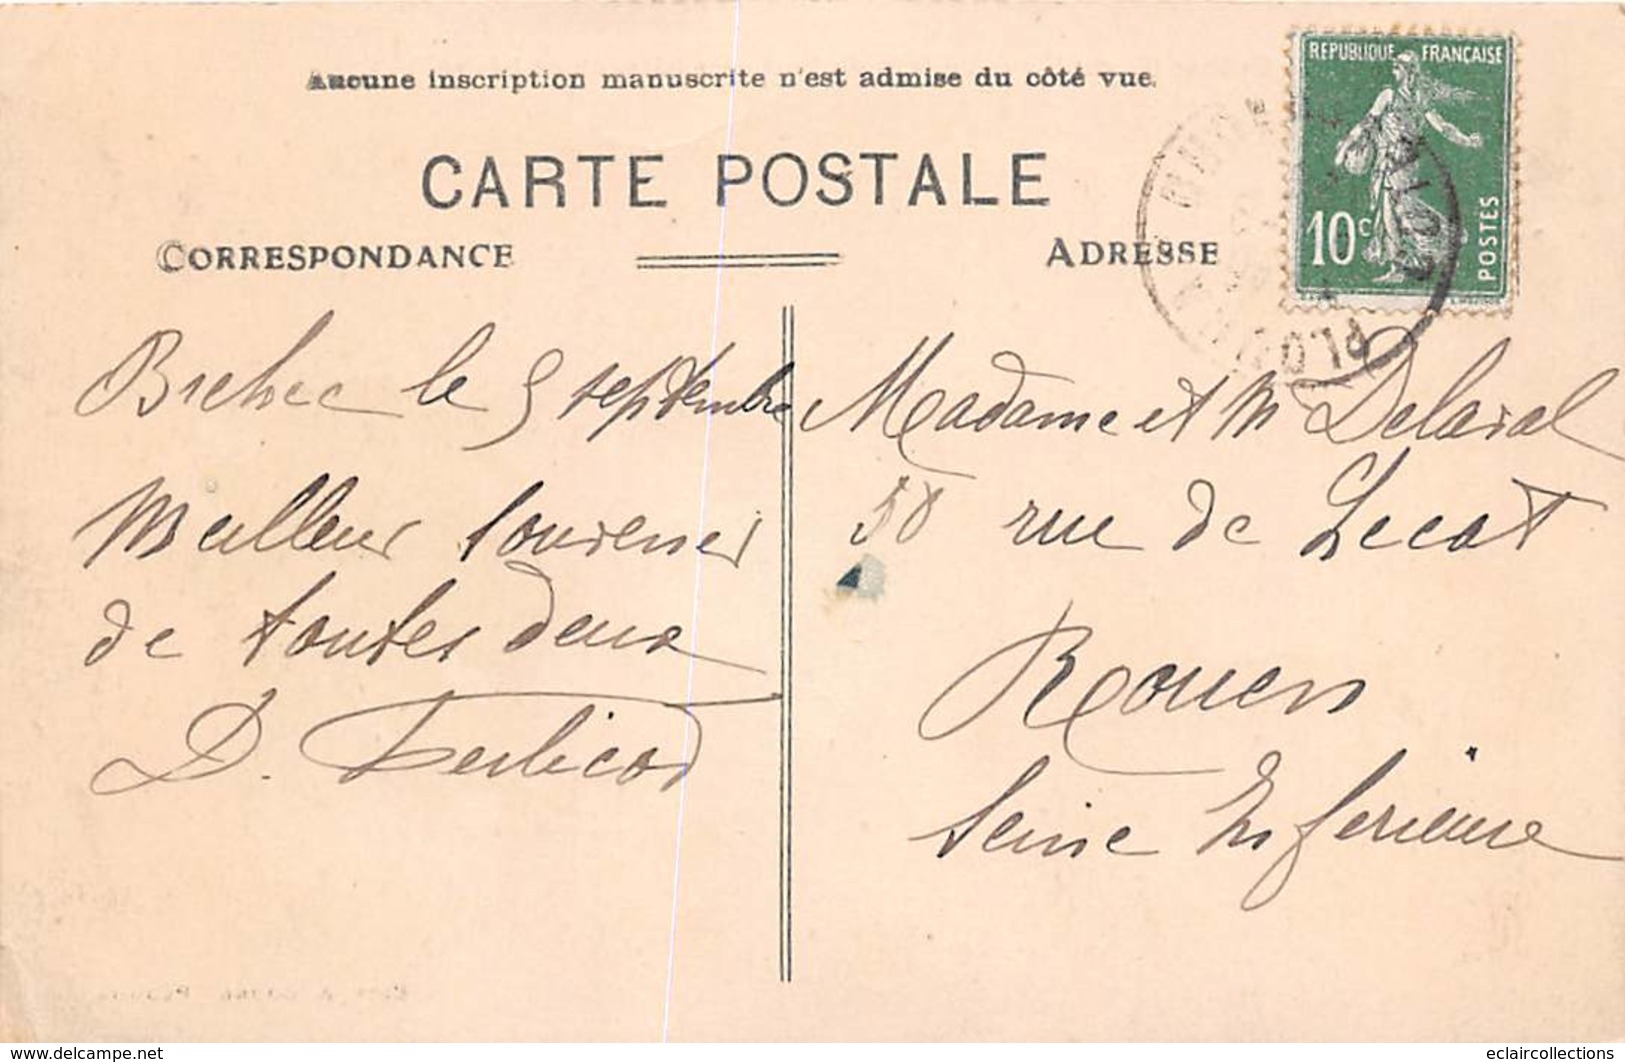 Aucune inscription manuscrite n'est admise du côté vue.
CARTE POSTALE
CORRESPONDANCE
ADRESSE
REPUBLIQUE FRANÇAISE
10c
POSTES
Brehec le 5 septembre
Meilleur souvenir
de toutes deux
D.
Madame et M Delaval
58 rue de Lecat
Rouen
Seine Inferieure
www.delcampe.net
eclaircollections